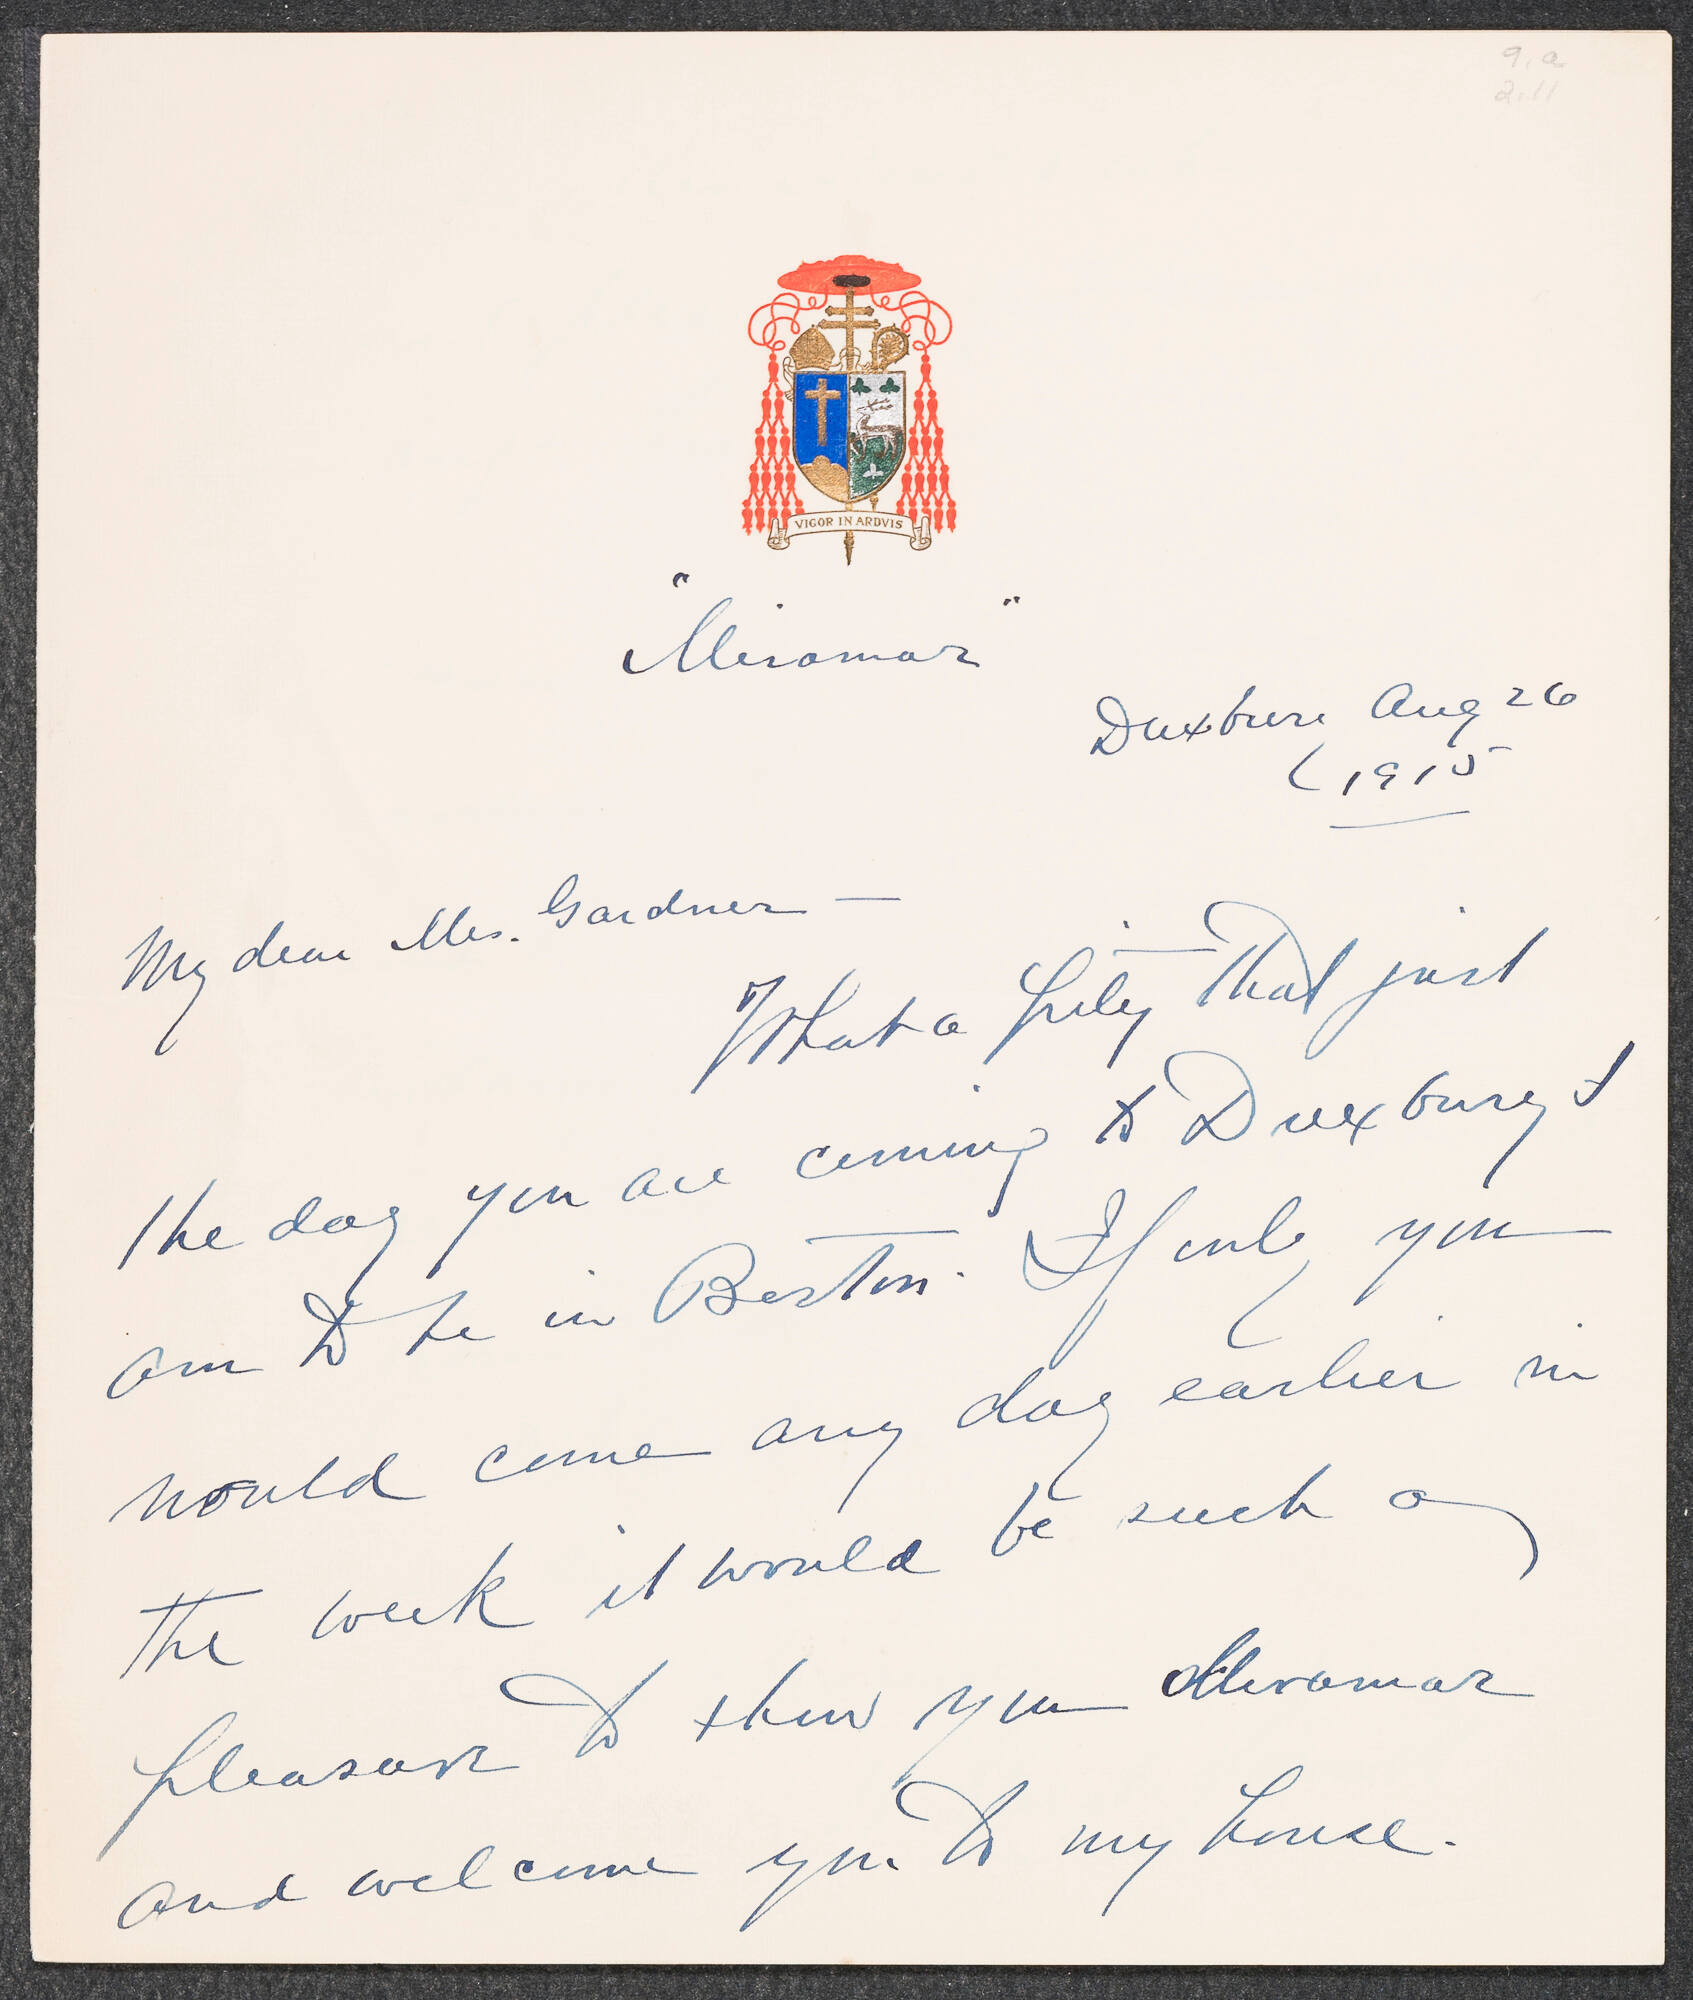 9.a
2.11
VIGOR IN ARDVIS
"Miramar"
Duxbury Aug 26
1915
My dear Mrs. Gardner —
What a pity that just
the day you are coming to Duxbury I
am to be in Boston. If only you
would come any day earlier in
the week it would be such a
pleasure to show you Miramar
and welcome you to my house.